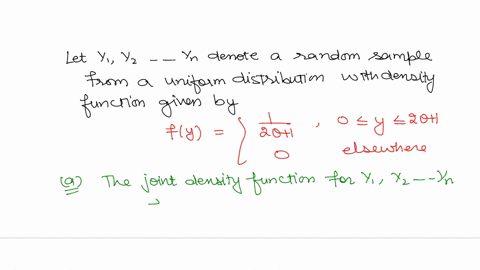 Let Y1, Y2 --- Yn denote a random sample
from a uniform distribution with density
function given by
f(y) = { 1/2θ+1 , 0 ≤ y ≤ 2θ+1
0 elsewhere
(a) The joint density function for Y1, Y2 --- Yn